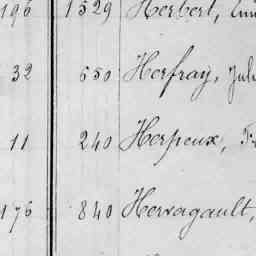 196 1529 Herbert,
32 650 Herfray, Jul
11 240 Herpeux, Fr
176 840 Hervagault,